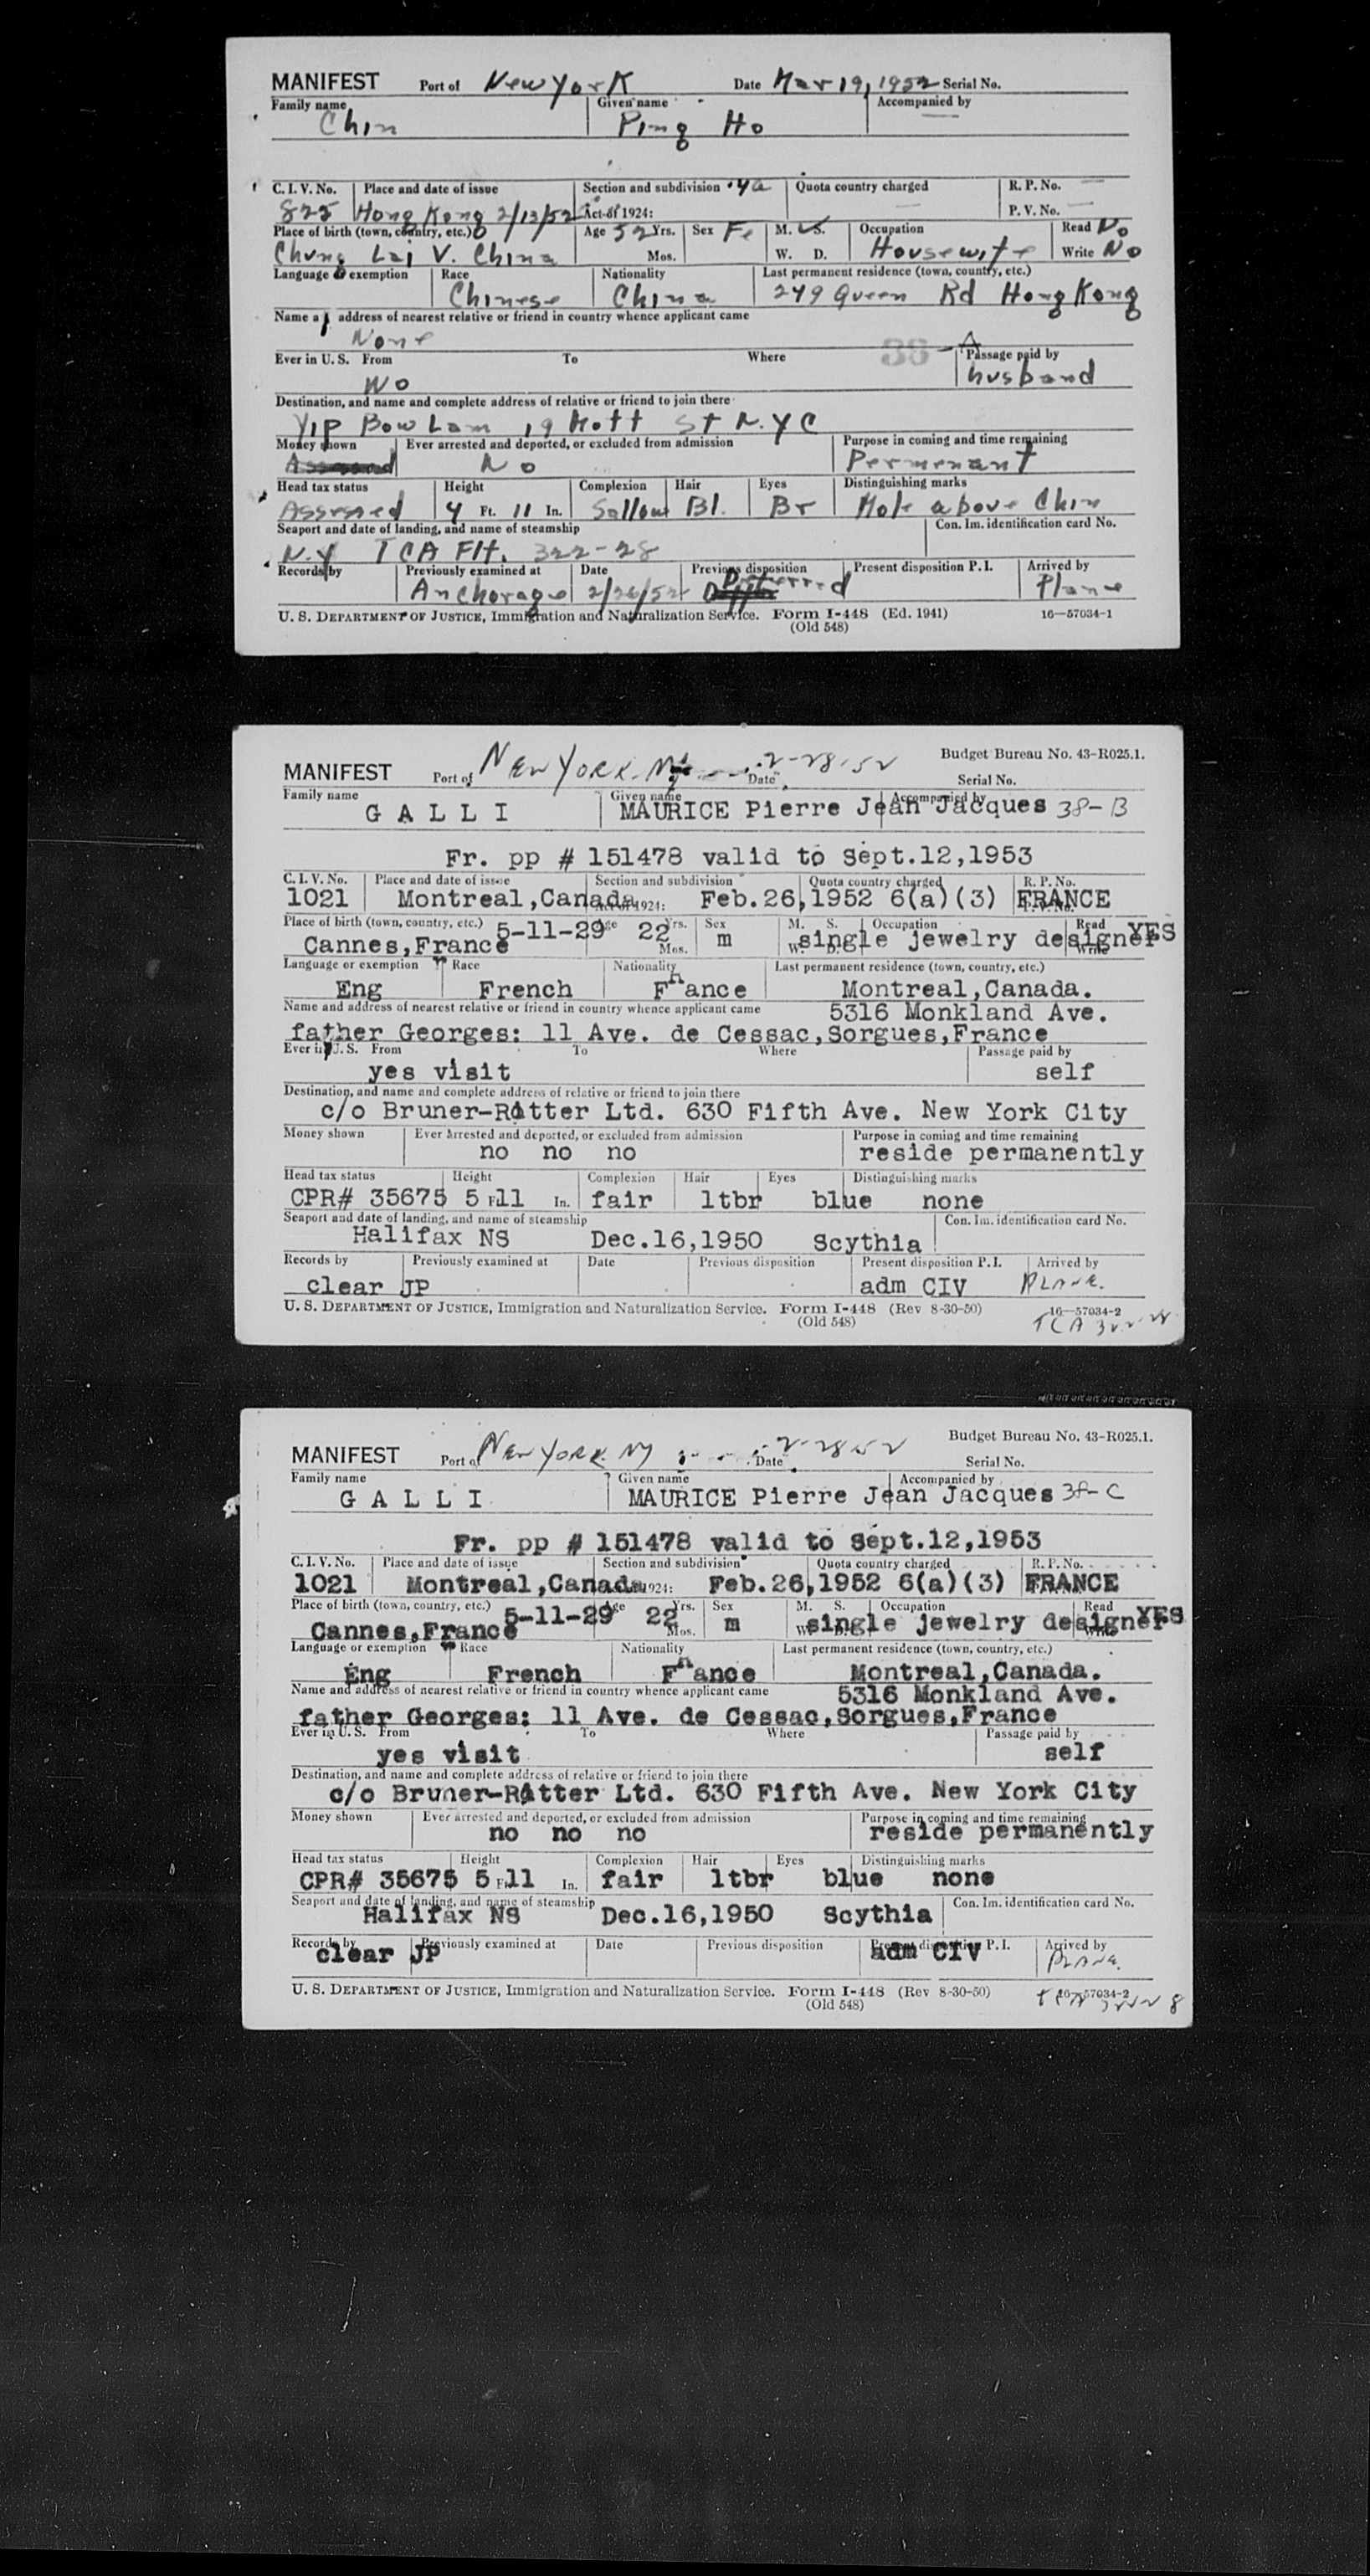 MANIFEST Port of New York Date Mar 19, 1952 Serial No.
Family name Given name Accompanied by
Chin Ping Ho
C. I. V. No. Place and date of issue Section and subdivision 4a Quota country charged R. P. No.
825 Hong Kong 2/13/52 Act of 1924: P. V. No.
Place of birth (town, country, etc.) Age 52 Yrs. Sex Fe M. S. Occupation Read No
Chung Lai V. China Mos. W. D. Housewife Write No
Language or exemption Race Nationality Last permanent residence (town, country, etc.)
Chinese China 249 Queen Rd Hong Kong
Name a address of nearest relative or friend in country whence applicant came
None
Ever in U. S. From To Where 38-A Passage paid by
No husband
Destination, and name and complete address of relative or friend to join there
Yip Bow Lam 19 Mott St N.Y C
Money shown Ever arrested and deported, or excluded from admission Purpose in coming and time remaining
No Permenant
Head tax status Height Complexion Hair Eyes Distinguishing marks
Assessed 4 Ft. 11 In. Sallow Bl. Br Mole above Chin
Seaport and date of landing, and name of steamship Con. Im. identification card No.
N.Y TCA Flt. 322-28
Records by Previously examined at Date Previous disposition Present disposition P. I. Arrived by
Anchorage 2/26/52 Deferred Plane
U. S. DEPARTMENT OF JUSTICE, Immigration and Naturalization Service. Form I-448 (Ed. 1941) 16—57034-1
(Old 548)
Budget Bureau No. 43-R025.1.
MANIFEST Port of New York. NY Date 2-28-52 Serial No.
Family name Given name Accompanied by
G A L L I MAURICE Pierre Jean Jacques 38-B
Fr. pp # 151478 valid to Sept.12,1953
C. I. V. No. Place and date of issue Section and subdivision Quota country charged R. P. No.
1021 Montreal,Canada Act of 1924: Feb.26,1952 6(a)(3) FRANCE
Place of birth (town, country, etc.) 5-11-29 Age 22 Yrs. Sex M. S. Occupation Read YES
Cannes,France Mos. m W. D. single jewelry designer Write
Language or exemption Race Nationality Last permanent residence (town, country, etc.)
Eng French France Montreal,Canada.
Name and address of nearest relative or friend in country whence applicant came 5316 Monkland Ave.
father Georges: 11 Ave. de Cessac,Sorgues,France
Ever in U. S. From To Where Passage paid by
yes visit self
Destination, and name and complete address of relative or friend to join there
c/o Bruner-Ritter Ltd. 630 Fifth Ave. New York City
Money shown Ever arrested and deported, or excluded from admission Purpose in coming and time remaining
no no no reside permanently
Head tax status Height Complexion Hair Eyes Distinguishing marks
CPR# 35675 5 Ft. 11 In. fair ltbr blue none
Seaport and date of landing, and name of steamship Con. Im. identification card No.
Halifax NS Dec.16,1950 Scythia
Records by Previously examined at Date Previous disposition Present disposition P. I. Arrived by
clear JP adm CIV PLANE.
U. S. DEPARTMENT OF JUSTICE, Immigration and Naturalization Service. Form I-448 (Rev 8-30-50) 16—57034-2
(Old 548) TCA 322-28
Budget Bureau No. 43-R025.1.
MANIFEST Port of New York. NY Date 2-28 52 Serial No.
Family name Given name Accompanied by
G A L L I MAURICE Pierre Jean Jacques 38-C
Fr. pp # 151478 valid to Sept.12,1953
C. I. V. No. Place and date of issue Section and subdivision Quota country charged R. P. No.
1021 Montreal,Canada 1924: Feb.26,1952 6(a)(3) FRANCE
Place of birth (town, country, etc.) 5-11-29 Age 22 Yrs. Sex M. S. Occupation Read YES
Cannes,France Mos. m W. D. single jewelry designer Write
Language or exemption Race Nationality Last permanent residence (town, country, etc.)
Eng French France Montreal,Canada.
Name and address of nearest relative or friend in country whence applicant came 5316 Monkland Ave.
father Georges: 11 Ave. de Cessac,Sorgues,France
Ever in U. S. From To Where Passage paid by
yes visit self
Destination, and name and complete address of relative or friend to join there
c/o Bruner-Ritter Ltd. 630 Fifth Ave. New York City
Money shown Ever arrested and deported, or excluded from admission Purpose in coming and time remaining
no no no reside permanently
Head tax status Height Complexion Hair Eyes Distinguishing marks
CPR# 35675 5 Ft. 11 In. fair ltbr blue none
Seaport and date of landing, and name of steamship Con. Im. identification card No.
Halifax NS Dec.16,1950 Scythia
Records by Previously examined at Date Previous disposition Present disposition P. I. Arrived by
clear JP adm CIV PLANE.
U. S. DEPARTMENT OF JUSTICE, Immigration and Naturalization Service. Form I-448 (Rev 8-30-50) 16—57034-2
(Old 548) TCA 322 28